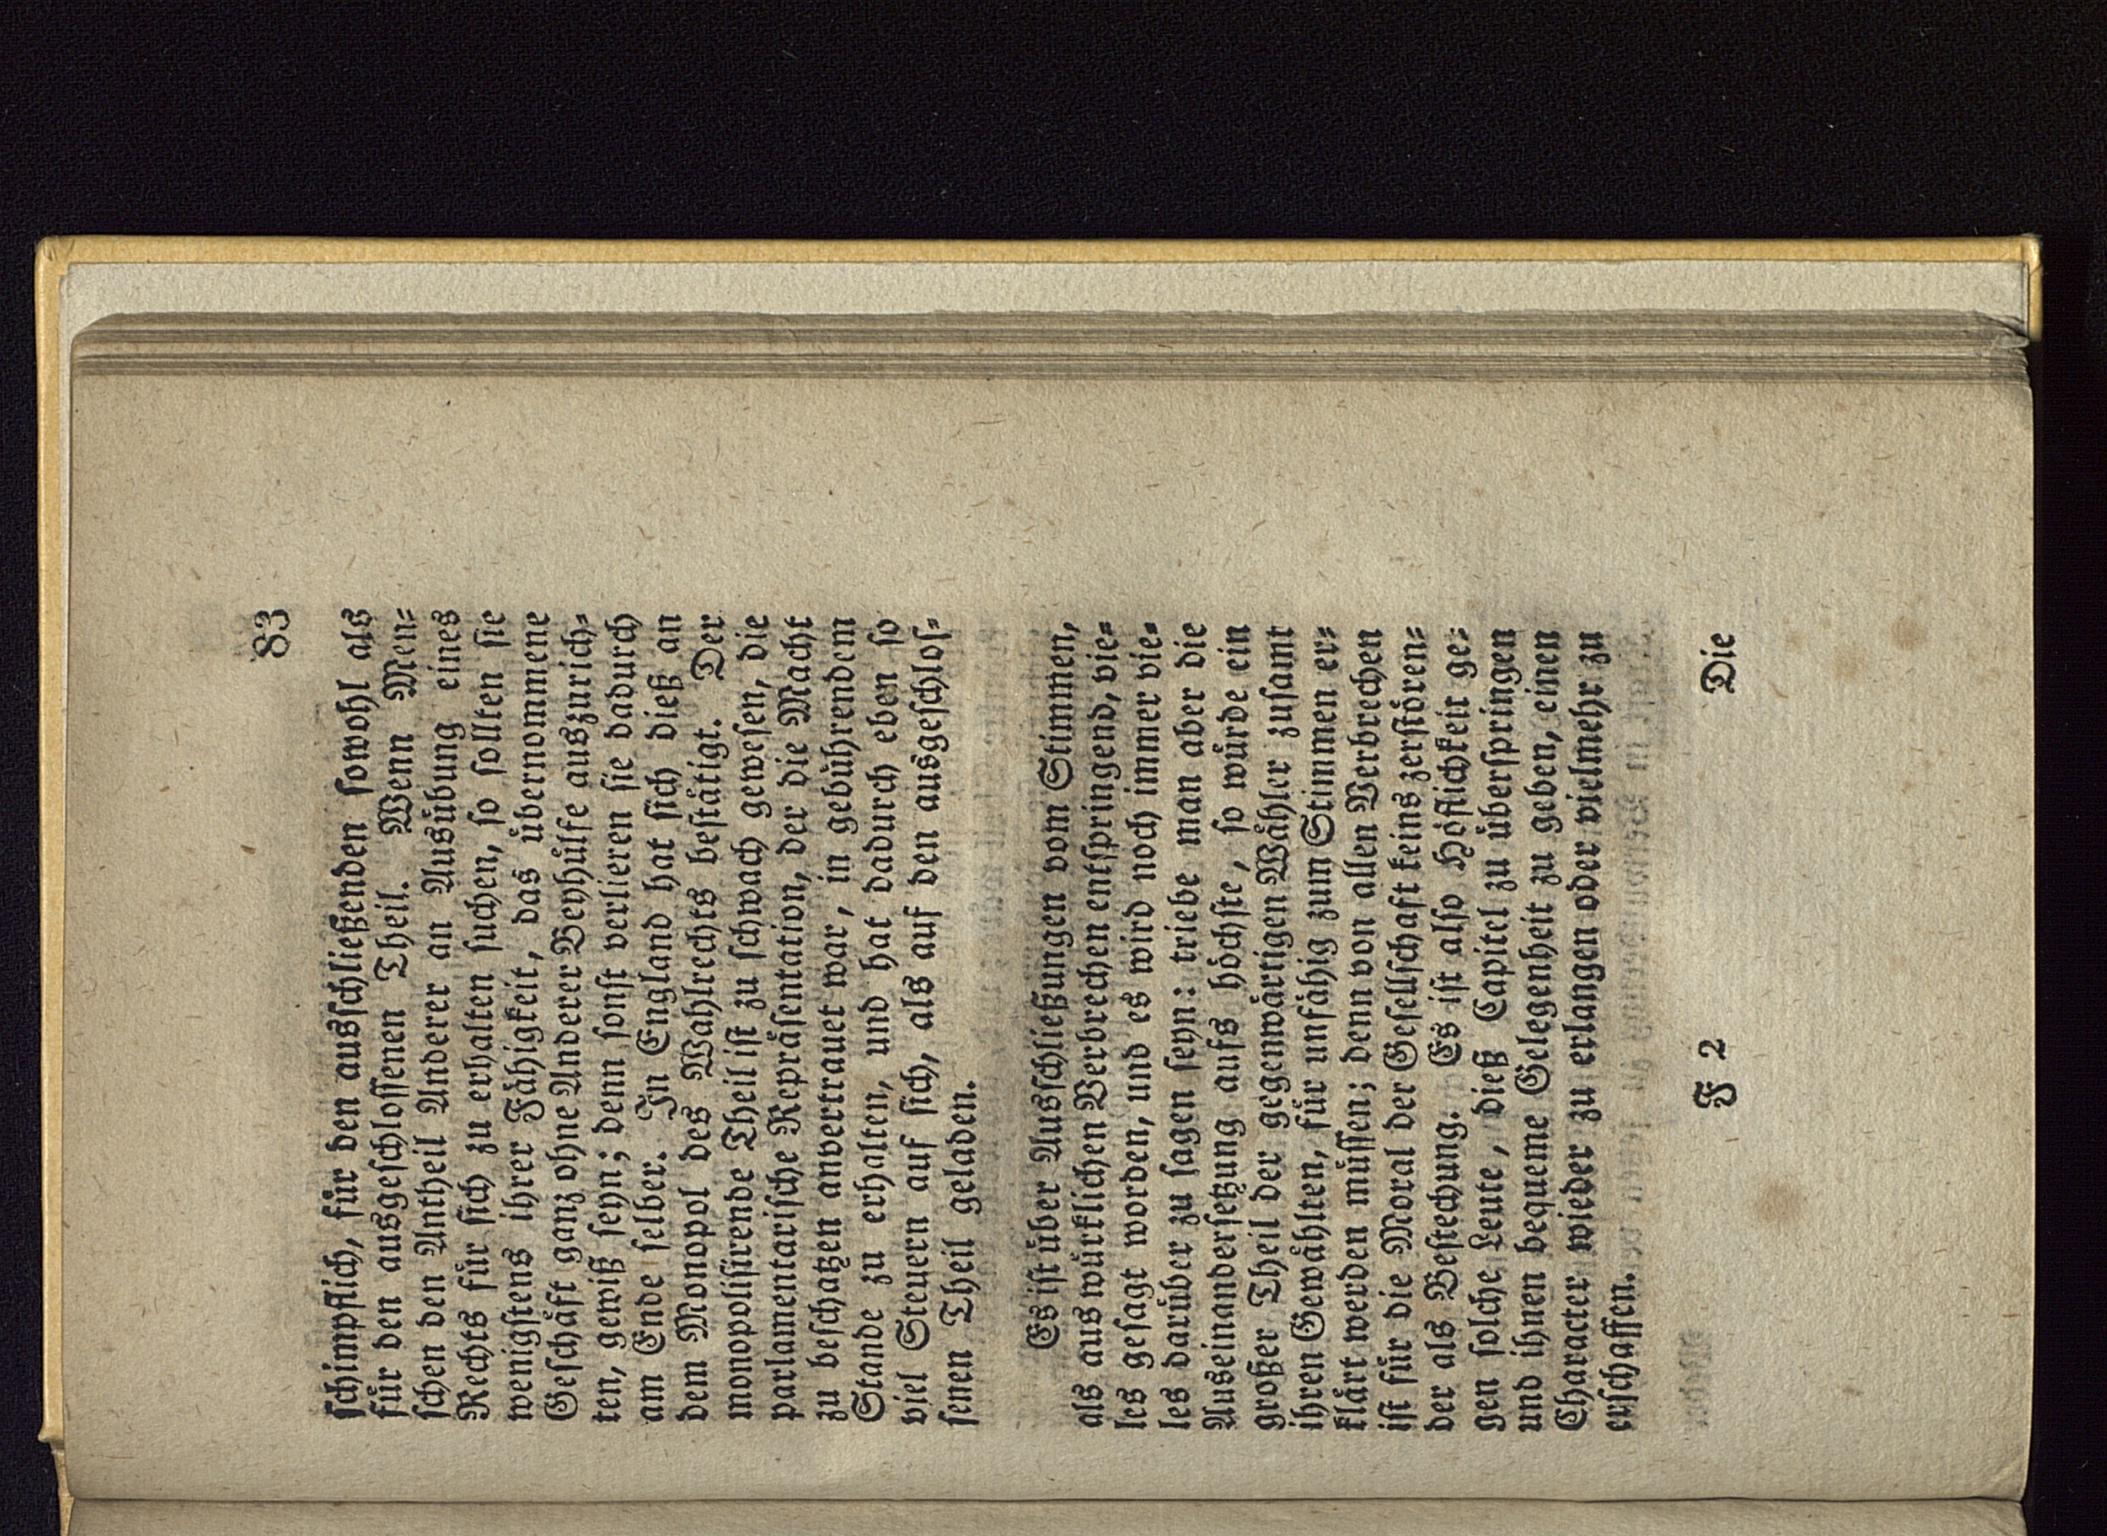 83
schimpflich, für den ausschließenden sowohl als
für den ausgeschlossenen Theil. Wenn Men-
schen den Antheil Anderer an Ausübung eines
Rechts für sich zu erhalten suchen, so sollten sie
wenigstens ihrer Fähigkeit, das übernommene
Geschäft ganz ohne Anderer Beyhülfe auszurich-
ten, gewiß seyn; denn sonst verlieren sie dadurch
am Ende selber. In England hat sich dieß an
dem Monopol des Wahlrechts bestätigt. Der
monopolisirende Theil ist zu schwach gewesen, die
parlamentarische Repräsentation, der die Macht
zu beschatzen anvertrauet war, in gebührendem
Stande zu erhalten, und hat dadurch eben so
viel Steuern auf sich, als auf den ausgeschlos-
senen Theil geladen.
Es ist über Ausschließungen vom Stimmen,
als aus würklichen Verbrechen entspringend, vie-
les gesagt worden, und es wird noch immer vie-
les darüber zu sagen seyn: triebe man aber die
Auseinandersetzung aufs höchste, so würde ein
großer Theil der gegenwärtigen Wähler zusamt
ihren Gewählten, für unfähig zum Stimmen er-
klärt werden müssen; denn von allen Verbrechen
ist für die Moral der Gesellschaft keins zerstören-
der als Bestechung. Es ist also Höflichkeit ge-
gen solche Leute, dieß Capitel zu überspringen
und ihnen bequeme Gelegenheit zu geben, einen
Character wieder zu erlangen oder vielmehr zu
erschaffen.
F 2 Die